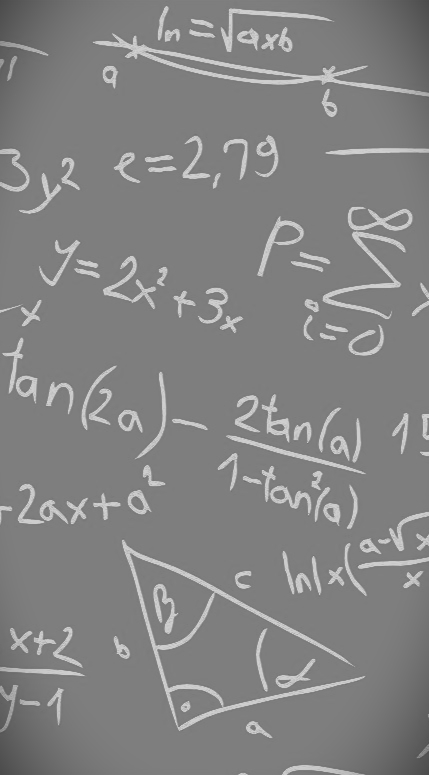 ln = √axb
a
b
3y² e=2,79
y=2x²+3x
P=∑ ∞ i=0
x
tan(2a) - 2tan(a) / 1-tan²(a)
-2ax+a²
c ln|x(a-√x / x
β
b
α
a
x+2 / y-1